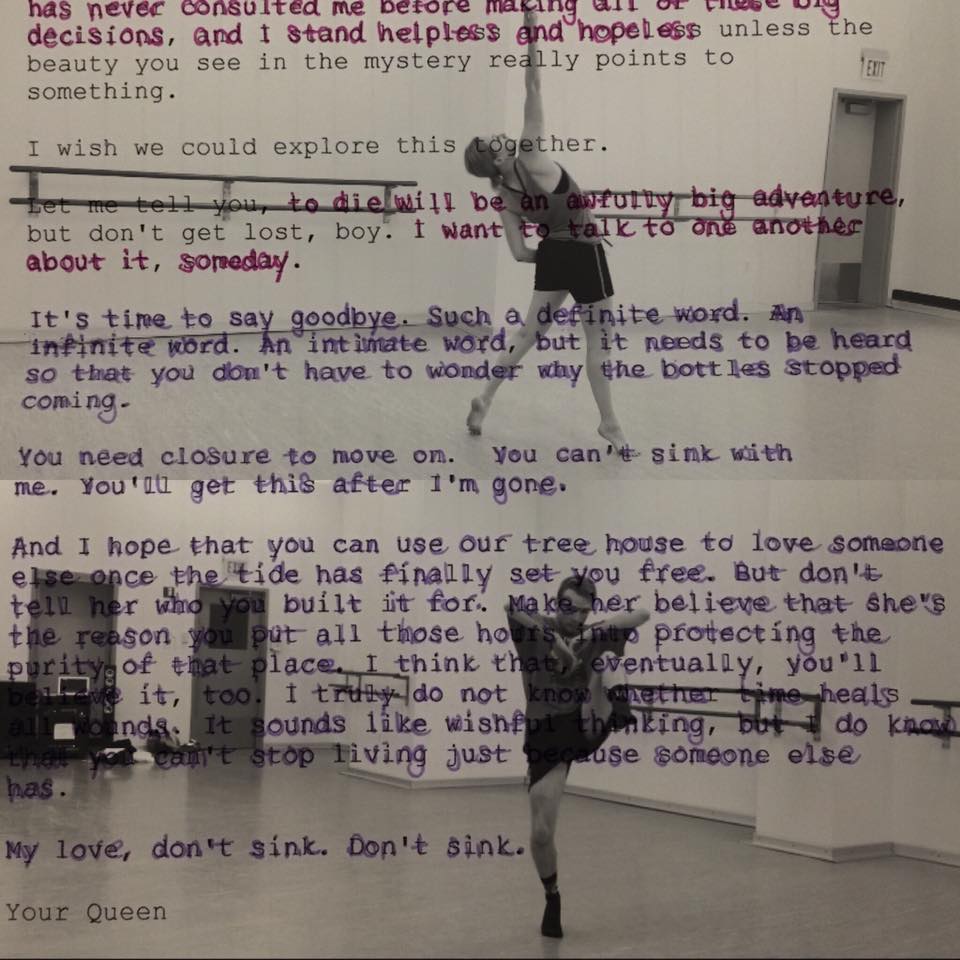 has never consulted me before making all of these big
decisions, and I stand helpless and hopeless unless the
beauty you see in the mystery really points to
something.
EXIT
I wish we could explore this together.
Let me tell you, to die will be an awfully big adventure,
but don't get lost, boy. I want to talk to one another
about it, someday.
It's time to say goodbye. Such a definite word. An
infinite word. An intimate word, but it needs to be heard
so that you don't have to wonder why the bottles stopped
coming.
You need closure to move on. You can't sink with
me. You'll get this after I'm gone.
And I hope that you can use our tree house to love someone
else once the tide has finally set you free. But don't
tell her who you built it for. Make her believe that she's
the reason you put all those hours into protecting the
purity of that place. I think that, eventually, you'll
believe it, too. I truly do not know whether time heals
all wounds. It sounds like wishful thinking, but I do know
that you can't stop living just because someone else
has.
My love, don't sink. Don't sink.
Your Queen